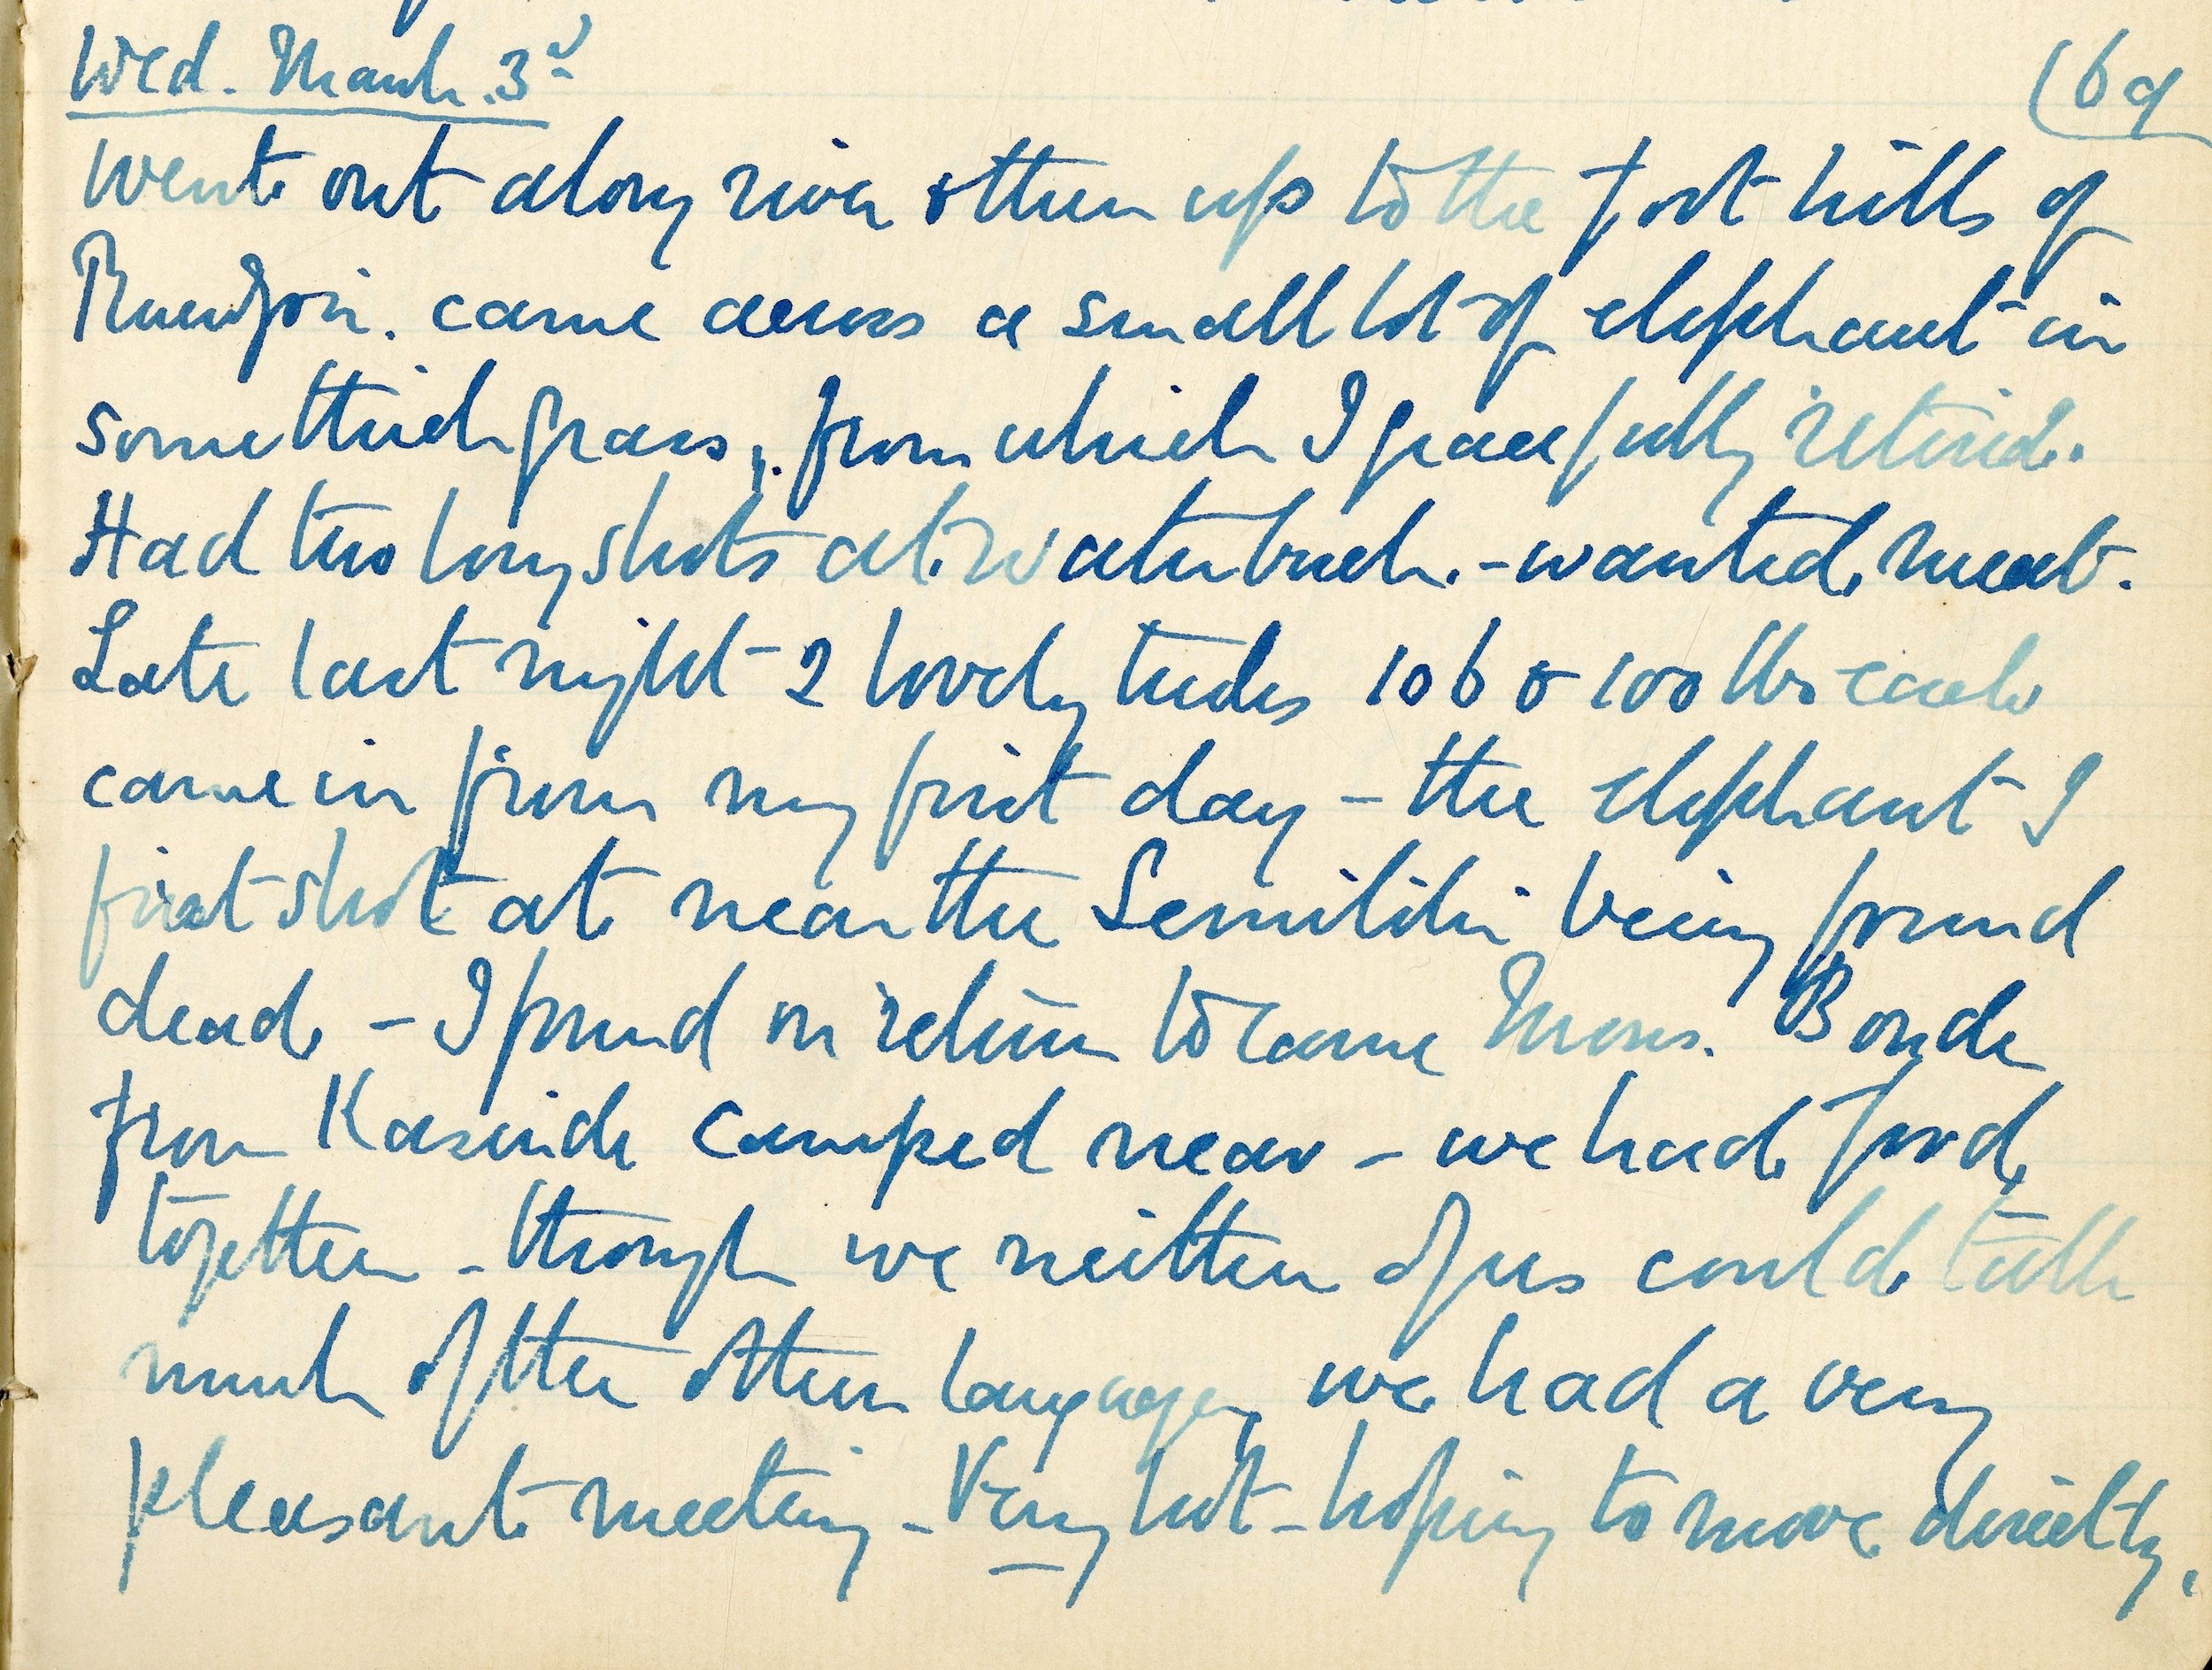 Wed. March. 3rd
(69
Went out along river & then up to the foot hills of
Ruenzori. came across a small lot of elephant in
some thick grass, from which I gracefully retired.
Had two long shots at waterbuck. - wanted meat.
Late last night 2 lovely tusks 106 & 100 lbs each
came in from my first day - the elephant I
first shot at near the Semiliki being found
dead - I found on return to came Mons. Bonde
from Kasindi camped near - we had food
together - though we neither of us could talk
much of the other language, we had a very
pleasant meeting - Very hot - hoping to move directly.